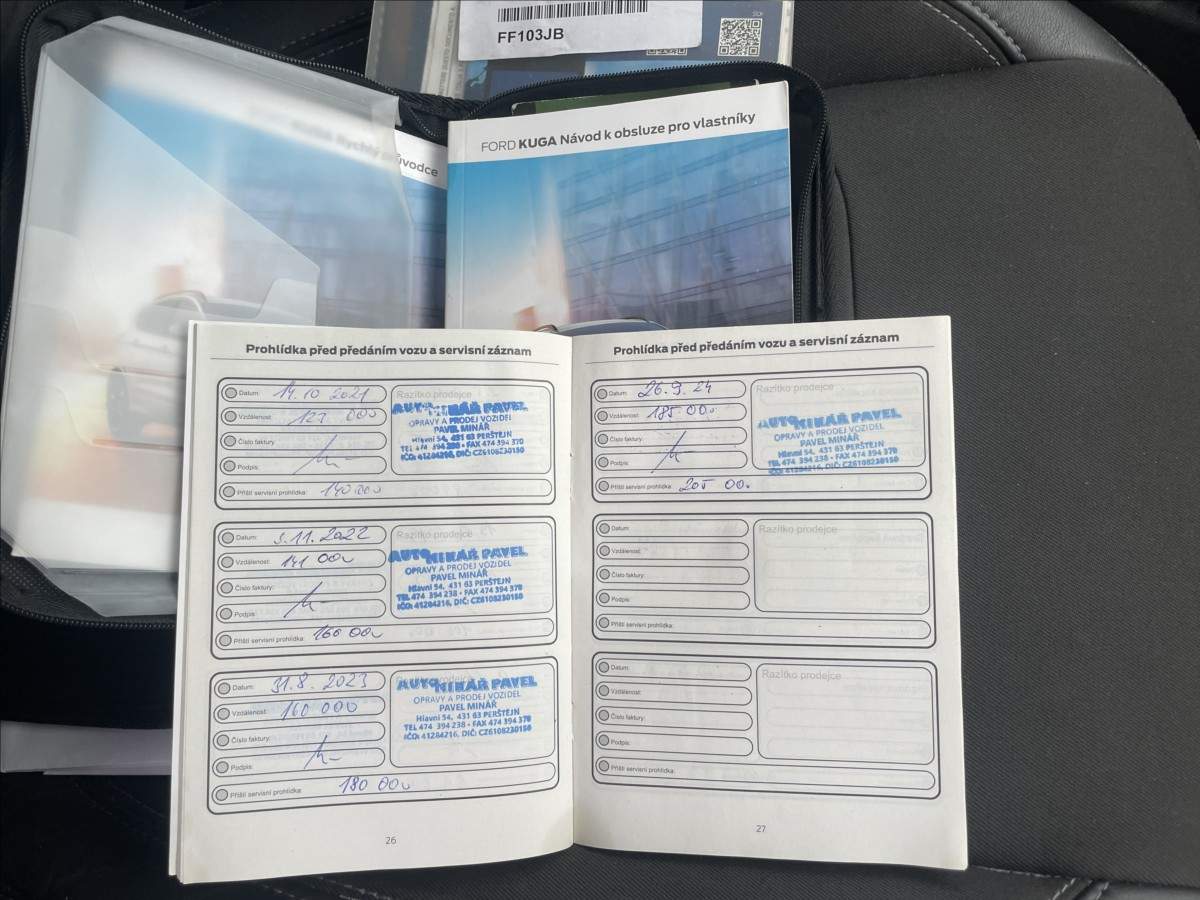 FF103JB
FORD KUGA Rychlý průvodce
FORD KUGA Návod k obsluze pro vlastníky
Prohlídka před předáním vozu a servisní záznam
Datum: 14.10 2021
Vzdálenost: 127 000
Číslo faktury:
Podpis:
Příští servisní prohlídka: 140 000
Razítko prodejce
AUTO MINÁŘ PAVEL
OPRAVY A PRODEJ VOZIDEL
PAVEL MINÁŘ
Hlavní 54, 431 63 PERŠTEJN
TEL 474 394 238 • FAX 474 394 370
IČO: 41284216, DIČ: CZ6108230150
Datum: 3.11.2022
Vzdálenost: 141 000
Číslo faktury:
Podpis:
Příští servisní prohlídka: 160 000
Razítko prodejce
AUTO MINÁŘ PAVEL
OPRAVY A PRODEJ VOZIDEL
PAVEL MINÁŘ
Hlavní 54, 431 63 PERŠTEJN
TEL 474 394 238 • FAX 474 394 370
IČO: 41284216, DIČ: CZ6108230150
Datum: 31.8.2023
Vzdálenost: 160 000
Číslo faktury:
Podpis:
Příští servisní prohlídka: 180 000
AUTO MINÁŘ PAVEL
OPRAVY A PRODEJ VOZIDEL
PAVEL MINÁŘ
Hlavní 54, 431 63 PERŠTEJN
TEL 474 394 238 • FAX 474 394 370
IČO: 41284216, DIČ: CZ6108230150
26
Prohlídka před předáním vozu a servisní záznam
Datum: 26.9.24
Vzdálenost: 185 000
Číslo faktury:
Podpis:
Příští servisní prohlídka: 205 000
Razítko prodejce
AUTO MINÁŘ PAVEL
OPRAVY A PRODEJ VOZIDEL
PAVEL MINÁŘ
Hlavní 54, 431 63 PERŠTEJN
TEL 474 394 238 • FAX 474 394 370
IČO: 41284216, DIČ: CZ6108230150
Datum:
Vzdálenost:
Číslo faktury:
Podpis:
Příští servisní prohlídka:
Razítko prodejce
Datum:
Vzdálenost:
Číslo faktury:
Podpis:
Příští servisní prohlídka:
Razítko prodejce
27